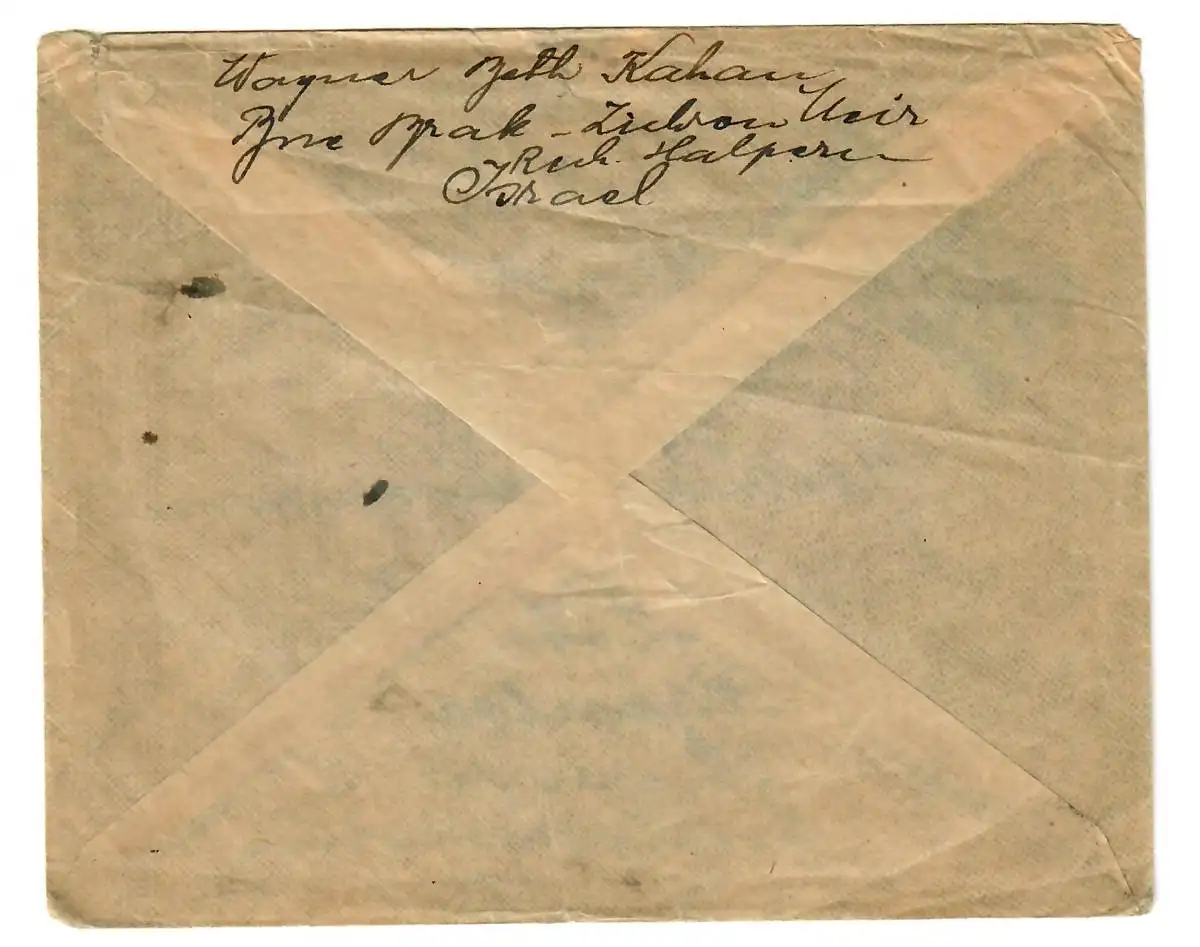 Wagner Beth Kahan
Bne Brak - Zichron Meir
Rech. Halpern
Israel